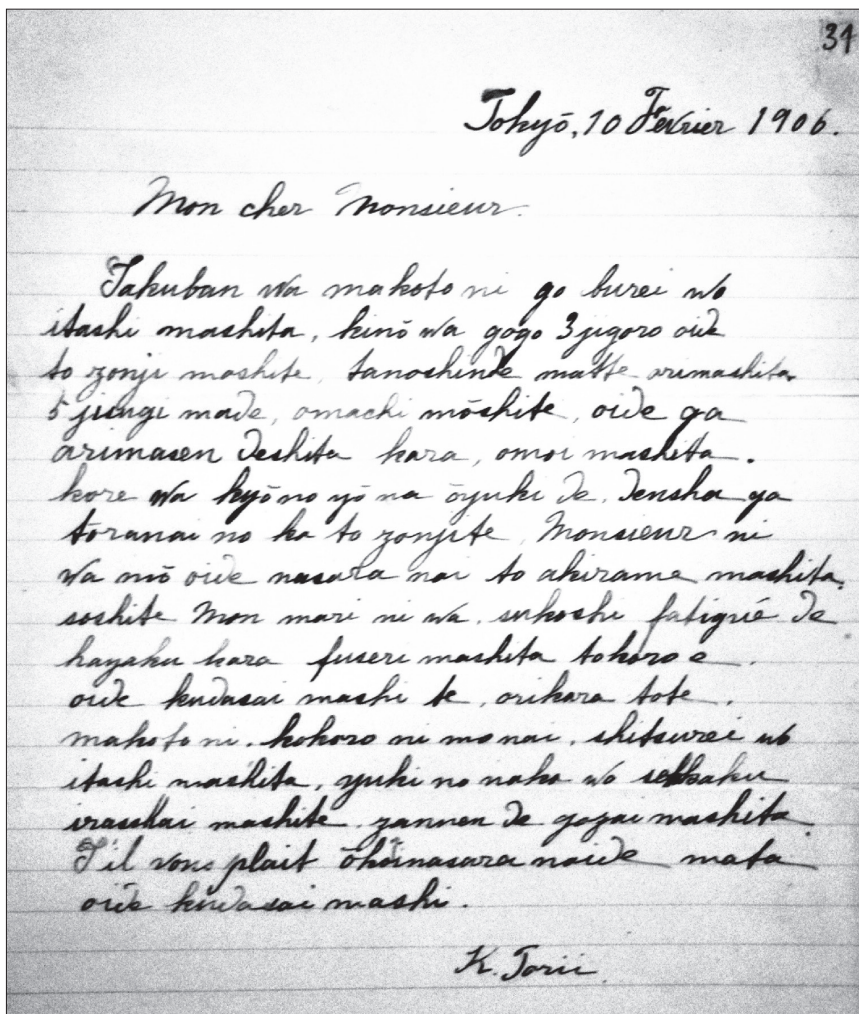 34
Tokyō, 10 Fevrier 1906.
Mon cher Monsieur.
Sakuban wa makoto ni go burei wo
itashi mashita, kinō wa gogo 3 jigoro oide
to zonji mashite, tanoshinde matte orimashita.
5 jisugi made, omachi mōshite, oide ga
arimasen deshita kara, omoi mashita.
kore wa kyō no yō na ōyuki de, densha ga
tōranai no ka to zonjite, Monsieur ni
wa mō oide nasara nai to akirame mashita.
soshite Mon mari ni wa, sukoshi fatigué de
hayaku kara fuseri mashita tokoro e.
oide kudasai mashi te, orikara tote,
makoto ni, kokoro ni mo nai, shitsurei wo
itashi mashita, yuki no naka wo sekkaku
irasshai mashite, zannen de gozai mashita.
S'il vous plait nasara naide mata
oide kudasai mashi.
K. Torii.